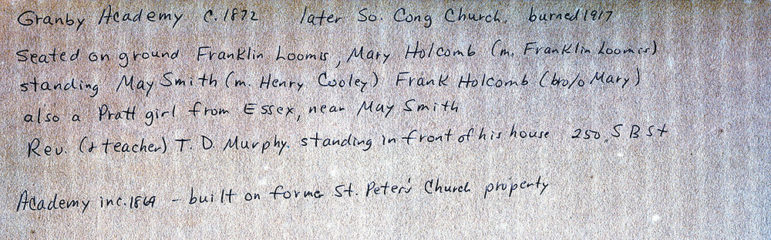 Granby Academy c. 1872 later So. Cong Church. burned 1917
Seated on ground Franklin Loomis, Mary Holcomb (m. Franklin Loomis)
standing May Smith (m. Henry Cooley) Frank Holcomb (bro/o Mary)
also a Pratt girl from Essex, near May Smith
Rev. (& teacher) T. D. Murphy. standing in front of his house 250 S B St
Academy inc. 1869 - built on former St. Peter's Church property